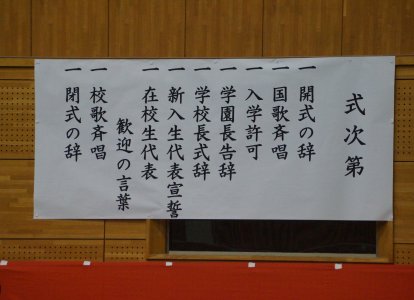 式次第
一 開式の辞
一 国歌斉唱
一 入学許可
一 学園長告辞
一 学校長式辞
一 新入生代表宣誓
一 在校生代表
歓迎の言葉
一 校歌斉唱
一 閉式の辞